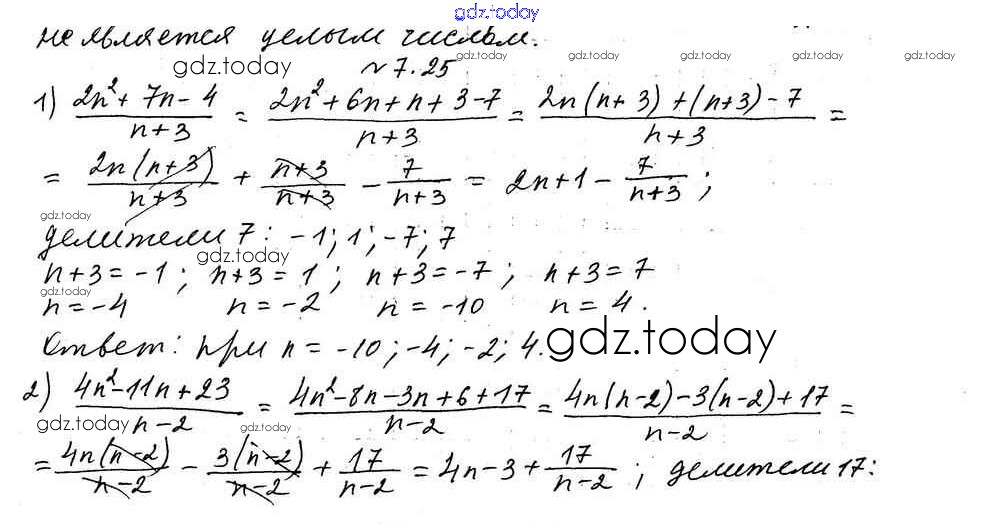 gdz.today
не является целым числом.
gdz.today gdz.today gdz.today gdz.today gdz.today
№7.25
1) (2n²+7n-4)/(n+3) = (2n²+6n+n+3-7)/(n+3) = (2n(n+3)+(n+3)-7)/(n+3) =
= (2n(n+3))/(n+3) + (n+3)/(n+3) - 7/(n+3) = 2n+1 - 7/(n+3);
gdz.today
делители 7: -1; 1; -7; 7
gdz.today
n+3=-1; n+3=1; n+3=-7; n+3=7
gdz.today
n=-4 n=-2 n=-10 n=4.
Ответ: при n=-10; -4; -2; 4.
gdz.today
2) (4n²-11n+23)/(n-2) = (4n²-8n-3n+6+17)/(n-2) = (4n(n-2)-3(n-2)+17)/(n-2) =
gdz.today gdz.today
= (4n(n-2))/(n-2) - (3(n-2))/(n-2) + 17/(n-2) = 4n-3+17/(n-2); делители 17: